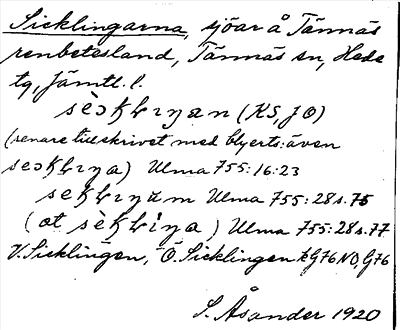 Sicklingarna, sjöar å Tännäs
renbetesland, Tännäs sn, Hede
tg, Jämtl. l.
(KS, JO)
(senare tillskrivet med blyerts: även
Ulma 755:16:23
Ulma 755:28 s. 75
(at Ulma 755:28 s. 77
V. Sicklingen, Ö. Sicklingen kG76NO, G76
S. Åsander 1920